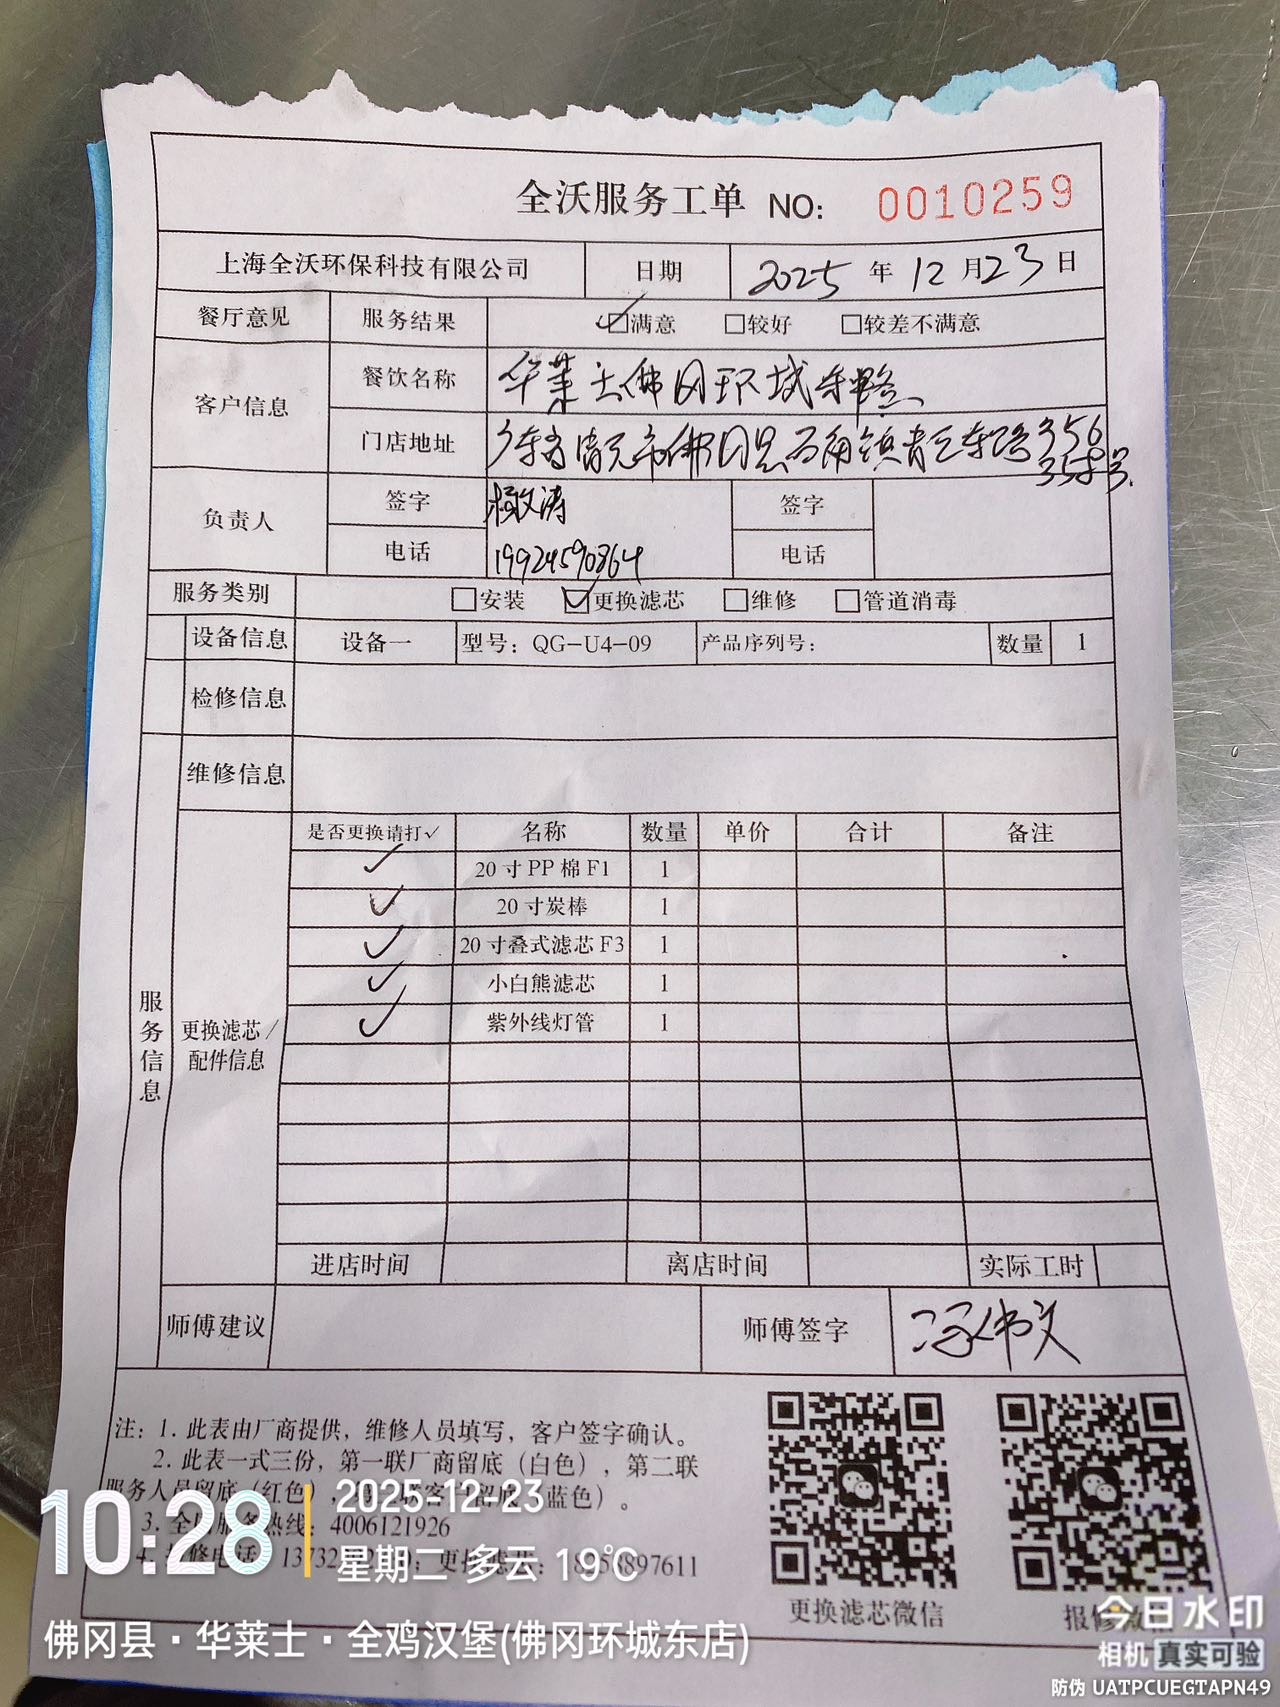 全沃服务工单 NO: 0010259
上海全沃环保科技有限公司 日期 2025 年 12 月 23 日
餐厅意见 服务结果 ☑满意 □较好 □较差不满意
客户信息 餐饮名称 华莱士佛冈环城东路
门店地址 广东省清远市佛冈县石角镇青云东路356
358号.
负责人 签字 签字
电话 19924590864 电话
服务类别 □安装 ☑更换滤芯 □维修 □管道消毒
设备信息 设备一 型号: QG-U4-09 产品序列号: 数量 1
检修信息
维修信息
服务信息
更换滤芯/
配件信息
是否更换请打✓ 名称 数量 单价 合计 备注
✓ 20寸PP棉F1 1
✓ 20寸炭棒 1
✓ 20寸叠式滤芯F3 1
✓ 小白熊滤芯 1
✓ 紫外线灯管 1
进店时间 离店时间 实际工时
师傅建议 师傅签字 冯伟文
注: 1. 此表由厂商提供, 维修人员填写, 客户签字确认。
2. 此表一式三份, 第一联厂商留底 (白色), 第二联
服务人员留底 (红色), 留底 (蓝色)。
3. 全 服务热线: 4006121926
4. 修电话 更换滤芯: 897611
更换滤芯微信 报修微信
10:28 2025-12-23
星期二 多云 19℃
佛冈县·华莱士·全鸡汉堡(佛冈环城东店)
今日水印
相机 真实可验
防伪 UATPCUEGTAPN49